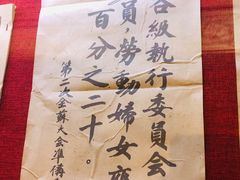 各級執行委員會
員，勞動婦女
百分之二十。
第二次全蘇大會準備